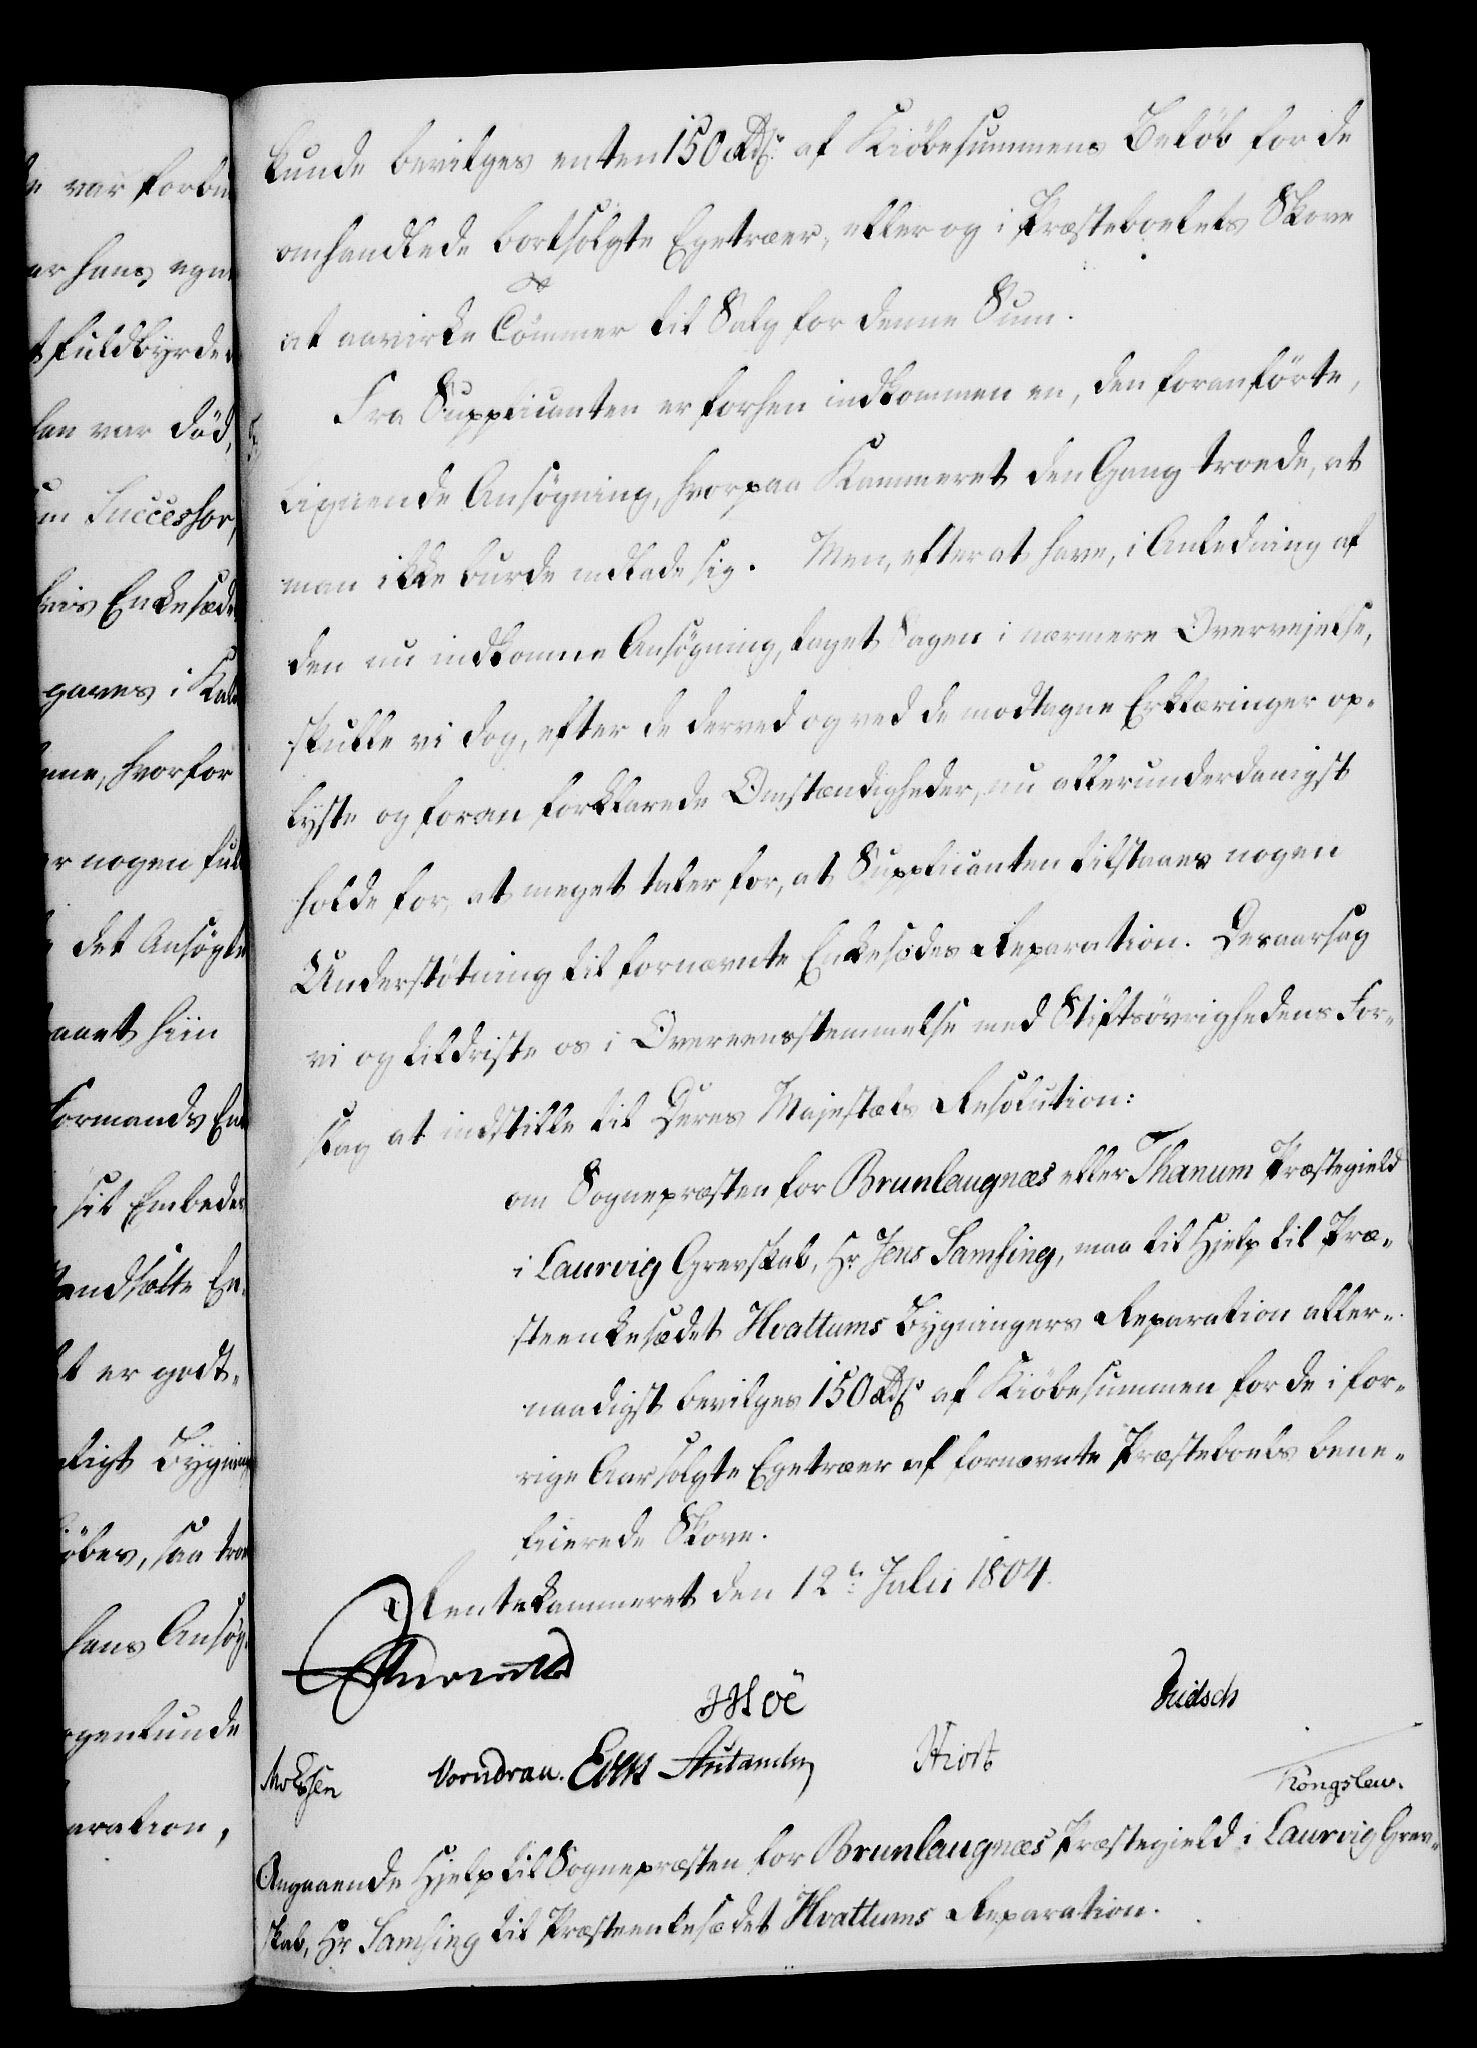 kunde bevilges enten 150 Rd. af Kiöbesummens Belöb for de
omhandlede bortsolgte Egetræer, eller og i Præsteboelets Skove
at aavirke Tömmer til Salg for denne Sum.
Fra Supplicanten er forhen indkommen en, den foranförte,
lignende Ansögning, hvorpaa Kammeret den Gang troede, at
man ikke burde indlade sig. Men, efter at have, i Anledning af
den nu indkomne Ansögning, taget Sagen i nærmere Overvejelse,
skulle vi dog, efter de derved og ved de modtagne Erklæringer op-
lyste og foran forklarede Omstændigheder, nu allerunderdanigst
holde for, at meget taler for, at Supplicanten tilstaaes nogen
Understötning til fornævnte Enkesædes Reparation. Desaarsag
vi og tildriste os i Overeensstemmelse med Stiftsövrighedens For-
slag at indstille til Deres Majestæts Resolution:
om Sognepræsten for Brunlaugnæs eller Thanum Præstegield
i Laurvig Grevskab, Hr Jens Samsing, maa til Hjelp til Præ-
steenkesædet Hvattums Bygningers Reparation aller-
naadigst bevilges 150 Rd. af Kiöbesummen for de i for-
rige Aar solgte Egetræer af fornævnte Præsteboels bene-
ficerede Skove.
Rentekammeret den 12te Julii 1804.
Moë
Knudsen Vorndran. Hiort
Kongslew.
Angaaende Hjelp til Sognepræsten for Brunlaugnæs Præstegield i Laurvig Grev-
skab, Hr Samsing til Præsteenkesædet Hvattums Reparation.
e var
ar hans egne
t fuldbyrde
han var död,
Successor,
Enkesæde
gaves i
hvorfor
r nogen
det Ansögte
hiin
Formands
sit Embede
er godt-
Bygning
saa
hans Ansög-
aration,